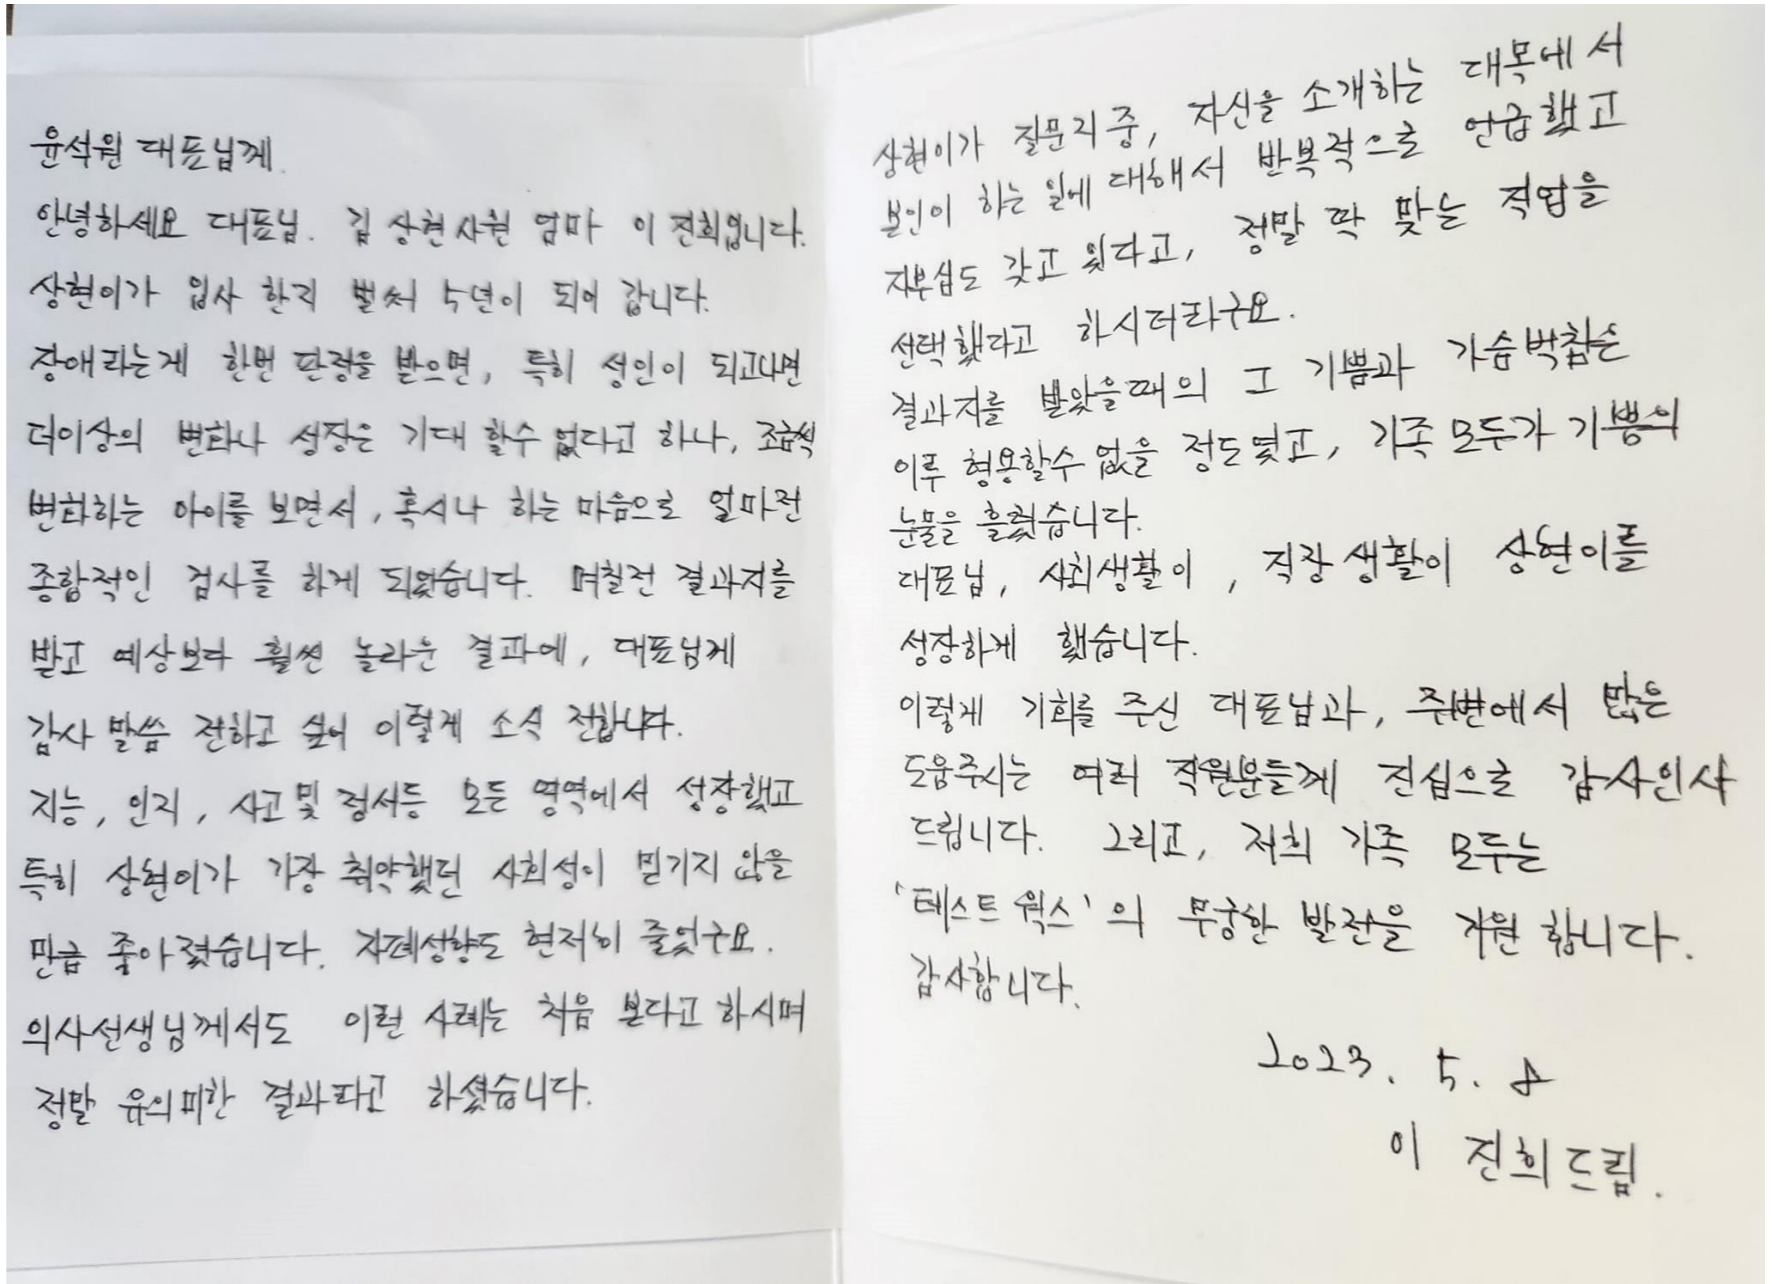 윤석원 대표님께.
안녕하세요 대표님. 김 상현사원 엄마 이 진희입니다.
상현이가 입사 한지 벌써 5년이 되어 갑니다.
장애라는게 한번 판정을 받으면, 특히 성인이 되고나면
더이상의 변화나 성장은 기대 할수 없다고 하나, 조금씩
변화하는 아이를 보면서, 혹시나 하는 마음으로 얼마전
종합적인 검사를 하게 되었습니다. 며칠전 결과지를
받고 예상보다 훨씬 놀라운 결과에, 대표님께
감사 말씀 전하고 싶어 이렇게 소식 전합니다.
지능, 인지, 사고 및 정서등 모든 영역에서 성장했고
특히 상현이가 가장 취약했던 사회성이 믿기지 않을
만큼 좋아졌습니다. 자폐성향도 현저히 줄었구요.
의사선생님께서도 이런 사례는 처음 본다고 하시며
정말 유의미한 결과라고 하셨습니다.
상현이가 질문지 중, 자신을 소개하는 대목에서
본인이 하는 일에 대해서 반복적으로 언급했고
자부심도 갖고 있다고, 정말 딱 맞는 직업을
선택했다고 하시더라구요.
결과지를 받았을때의 그 기쁨과 가슴벅참은
이루 형용할수 없을 정도였고, 가족 모두가 기쁨의
눈물을 흘렸습니다.
대표님, 사회생활이, 직장생활이 상현이를
성장하게 했습니다.
이렇게 기회를 주신 대표님과, 주변에서 많은
도움주시는 여러 직원분들께 진심으로 감사인사
드립니다. 그리고, 저희 가족 모두는
'테스트웍스'의 무궁한 발전을 기원 합니다.
감사합니다.
2023. 5. 8
이 진희드림.